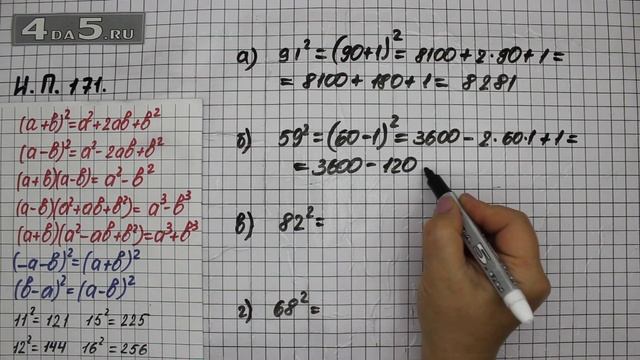 4DA5.RU
Н.П. 171.
(a+b)²=a²+2ab+b²
(a-b)²=a²-2ab+b²
(a+b)(a-b)=a²-b²
(a-b)(a²+ab+b²)=a³-b³
(a+b)(a²-ab+b²)=a³+b³
(-a-b)²=(a+b)²
(b-a)²=(a-b)²
11²=121 15²=225
12²=144 16²=256
а) 91²=(90+1)²=8100+2·90+1=
=8100+180+1=8281
б) 59²=(60-1)²=3600-2·60·1+1=
=3600-120
в) 82²=
г) 68²=